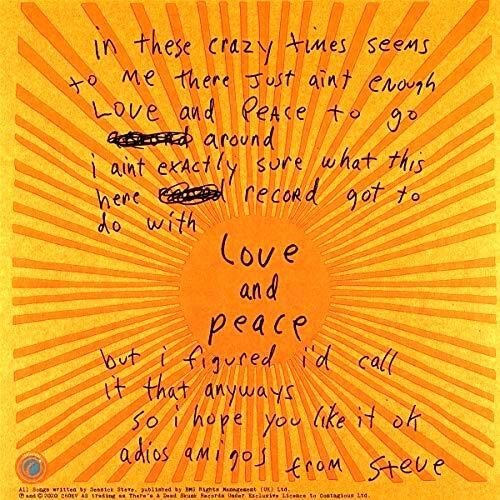 in these crazy times seems
to me there just aint enough
LOVE and PEACE to go
around
i aint exactly sure what this
here record got to
do with
Love
and
peace
but i figured i'd call
it that anyways
so i hope you like it ok
adios amigos from Steve
All Songs written by Seasick Steve, published by BMG Rights Management (UK) Ltd.
℗ and © 2020 CHUGV AS trading as There's A Dead Skunk Records Under Exclusive Licence to Contagious Ltd.